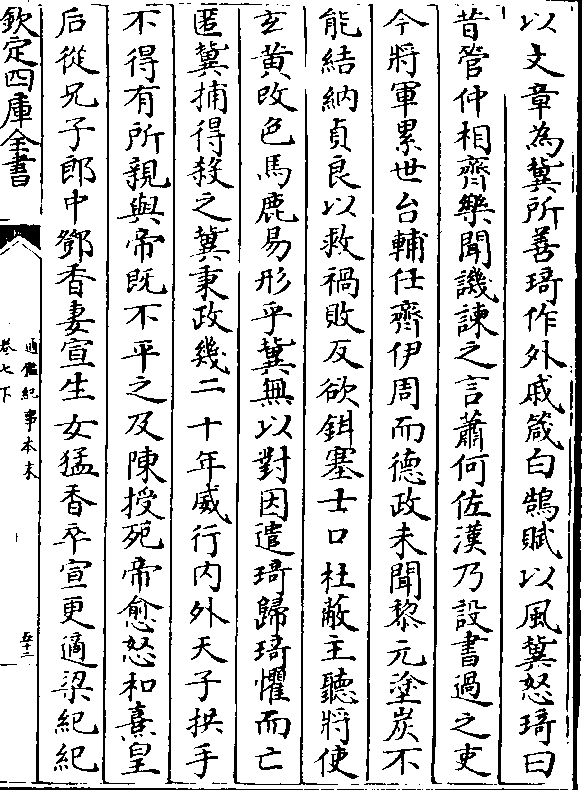 以文章為冀所善琦作外戚箴白鵠賦以風冀怒琦曰
昔管仲相齊樂聞譏諫之言蕭何佐漢乃設書過之吏
今將軍累世台輔任齊伊周而德政未聞黎元塗炭不
能結納貞良以救禍敗反欲鉗塞士口杜蔽主聽將使
玄黄改色馬鹿易形乎冀無以對因遣琦歸琦懼而亡
匿冀捕得殺之冀秉政幾二十年威行内外天子拱手
不得有所親與帝既不平之及陳授死帝愈怒和熹皇
后從兄子郎中鄧香妻宣生女猛香卒宣更適梁紀紀
欽定四庫全書
通鑑紀事本末
卷七下
五十二